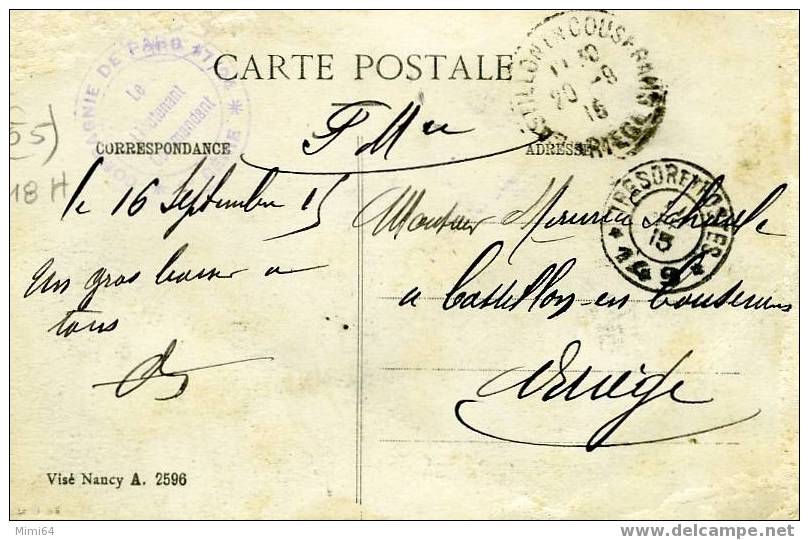 CARTE POSTALE
COMPAGNIE DE PARC
Le
Lieutenant
Commandant
F M
CORRESPONDANCE
ADRESSE
le 16 Septembre 15
Un gros baiser a
tous
Monsieur
a Castillon-en-Couserans
Ariège
CASTILLON EN COUSERANS
20
15
ARIEGE
TRESOR ET POSTES
15
* 149 *
55)
18 H
Visé Nancy A. 2596
Mimi64
www.delcampe.net